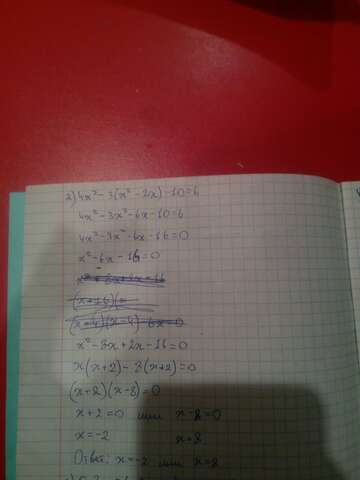 2) 4x² - 3(x² - 2x) - 10 = 6
4x² - 3x² - 6x - 10 = 6
4x² - 3x² - 6x - 16 = 0
x² - 6x - 16 = 0
(x+16)(
(x+4)(x-4) - 6x = 0
x² - 8x + 2x - 16 = 0
x(x+2) - 8(x+2) = 0
(x+2)(x-8) = 0
x+2 = 0 или x-8 = 0
x = -2 x = 8
Ответ: x = -2 или x = 8